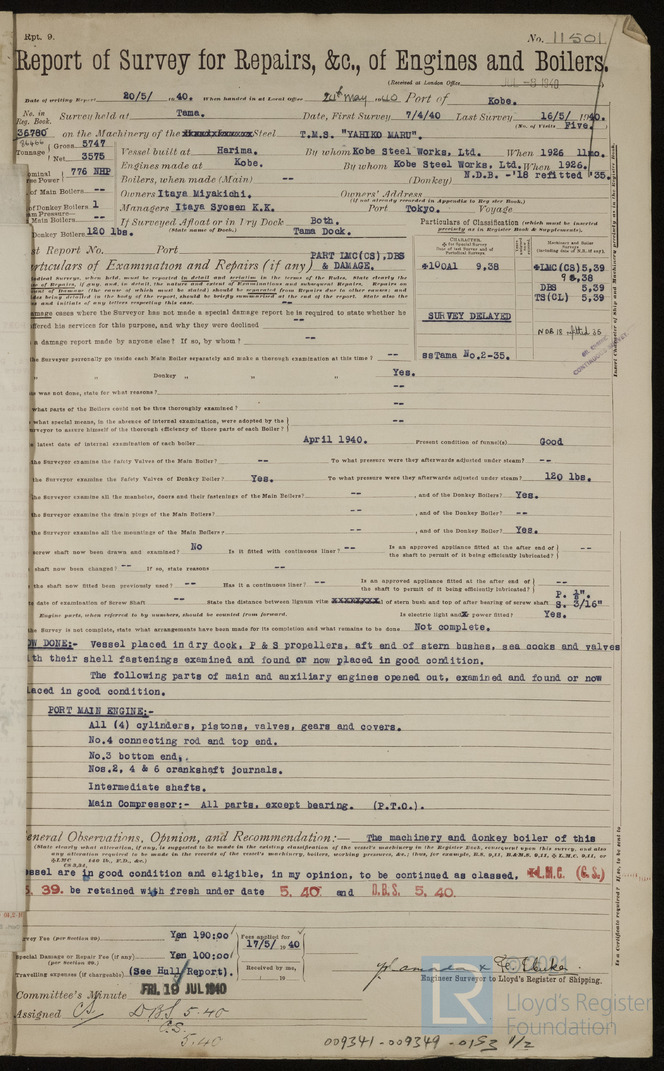 Rpt. 9.
No. 11501
Report of Survey for Repairs, &c., of Engines and Boilers.
(Received at London Office
Date of writing Report 20/5/ 1940. When handed in at Local Office 24th May 1940 Port of Kobe.
No. in Reg. Book. Survey held at Tama. Date, First Survey 7/4/40 Last Survey 16/5/ 1940.
(No. of Visits Five.)
36780 on the Machinery of the Steel T.M.S. "YAHIKO MARU".
Tonnage Gross 5747 Vessel built at Harima. By whom Kobe Steel Works, Ltd. When 1926 11mo.
Net 3575 Engines made at Kobe. By whom Kobe Steel Works, Ltd. When 1926.
776 NHP Boilers, when made (Main) -- (Donkey) N.D.B. -'18 refitted '35.
of Main Boilers -- Owners Itaya Miyakichi. Owners' Address
(if not already recorded in Appendix to Register Book.)
of Donkey Boilers 1 Managers Itaya Syosen K.K. Port Tokyo. Voyage
Main Boilers -- If Surveyed Afloat or in Dry Dock Both.
Donkey Boilers 120 lbs. (State name of Dock.) Tama Dock.
Particulars of Classification (which must be inserted precisely as in Register Book & Supplements).
st Report No. Port
rticulars of Examination and Repairs (if any) PART LMC(CS),DBS & DAMAGE.
+100A1 9,38
+LMC(CS)5,39
98,38
DBS 5,39
TS(CL) 5,39
SURVEY DELAYED
NDB 18 refitted 35
ssTama No.2-35.
amage cases where the Surveyor has not made a special damage report he is required to state whether he
ffered his services for this purpose, and why they were declined --
a damage report made by anyone else? If so, by whom? --
the Surveyor personally go inside each Main Boiler separately and make a thorough examination at this time? --
" Donkey " " " Yes.
was not done, state for what reasons? --
what parts of the Boilers could not be thus thoroughly examined? --
what special means, in the absence of internal examination, were adopted by the
rveyor to assure himself of the thorough efficiency of those parts of each Boiler? --
latest date of internal examination of each boiler April 1940. Present condition of funnel(s) Good
the Surveyor examine the Safety Valves of the Main Boiler? -- To what pressure were they afterwards adjusted under steam? --
the Surveyor examine the Safety Valves of Donkey Boiler? Yes. To what pressure were they afterwards adjusted under steam? 120 lbs.
the Surveyor examine all the manholes, doors and their fastenings of the Main Boilers? -- , and of the Donkey Boilers? Yes.
the Surveyor examine the drain plugs of the Main Boilers? -- , and of the Donkey Boiler? --
the Surveyor examine all the mountings of the Main Boilers? -- , and of the Donkey Boiler? Yes.
screw shaft now been drawn and examined? No Is it fitted with continuous liner? -- Is an approved appliance fitted at the after end of the shaft to permit of it being efficiently lubricated? --
shaft now been changed? -- If so, state reasons --
the shaft now fitted been previously used? -- Has it a continuous liner? -- Is an approved appliance fitted at the after end of the shaft to permit of it being efficiently lubricated? --
date of examination of Screw Shaft -- State the distance between lignum vitæ of stern bush and top of after bearing of screw shaft P. ½". S. 3/16"
Engine parts, when referred to by numbers, should be counted from forward. Is electric light and power fitted? Yes.
the Survey is not complete, state what arrangements have been made for its completion and what remains to be done Not complete.
OW DONE:- Vessel placed in dry dock, P & S propellers, aft end of stern bushes, sea cocks and valves
ith their shell fastenings examined and found or now placed in good condition.
The following parts of main and auxiliary engines opened out, examined and found or now
laced in good condition.
PORT MAIN ENGINE:-
All (4) cylinders, pistons, valves, gears and covers.
No.4 connecting rod and top end.
No.3 bottom end.
Nos.2, 4 & 6 crankshaft journals.
Intermediate shafts.
Main Compressor:- All parts, except bearing. (P.T.O.).
eneral Observations, Opinion, and Recommendation:— The machinery and donkey boiler of this
(State clearly what alteration, if any, is suggested to be made in the existing classification of the vessel's machinery in the Register Book, consequent upon this survey, and also
any alteration required to be made in the records of the vessel's machinery, boilers, working pressures, &c.; thus, for example, B.S. 9,11, B.&M.S. 9,11, +L.M.C. 9,11, or
essel are in good condition and eligible, in my opinion, to be continued as classed, +L.M.C. (C.S.)
5. 39. be retained with fresh under date 5. 40. and D.B.S. 5. 40.
vey Fee (per Section 29) Yen 190:00 Fees applied for 17/5/ 1940
Special Damage or Repair Fee (if any) (per Section 29.) Yen 100:00
Travelling expenses (if chargeable) (See Hull Report). Received by me,
Engineer Surveyor to Lloyd's Register of Shipping.
Committee's Minute FRI. 19 JUL 1940
Assigned CS DBS 5.40
C.S. 5.40
LR Lloyd's Register Foundation
009341-009349-0153 1/2